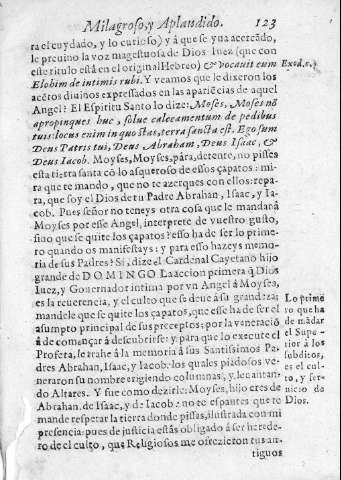 Milagroso, y Aplaudido. 123
ra el cuydado, y lo curioso) y â que se yua acercãdo,
le preuino la voz magestuosa de Dios Iuez (que con
este titulo està en el original Hebreo) & vocauit eum
Exod. c.
Elohim de intimis rubi. Y veamos que le dixeron los
acẽtos diuinos expressados en las apariẽcias de aquel
Angel? El Espiritu Santo lo dize: Moses, Moses nõ
apropinques huc, solue calceamentum de pedibus
tuis: locus enim in quo stas, terra sancta est. Ego sum
Deus Patris tui, Deus Abraham, Deus Isaac, &
Deus Iacob. Moyses, Moyses, pára, detente, no pisses
esta tierra santa cõ lo asqueroso de essos çapatos: mi-
ra que te mando, que no te azerques con ellos: repa-
ra, que soy el Dios de tu Padre Abrahan, Isaac, y Ia-
cob. Pues señor no teneys otra cosa que le mandarâ
Moyses por esse Angel, interprete de vuestro gusto,
sino que se quite los çapatos? esso ha de ser lo prime-
ro quando os manifestays: y para esso hazeys memo-
ria de sus Padres? Si, dize el Cardenal Cayetano hijo
grande de DOMINGO La accion primera q̃ Dios
Iuez, y Gouernador intima por vn Angel â Moyses,
es la reuerencia, y el culto que se deue à su grandeza;
mandele que se quite los çapatos, que esse ha de ser el
asumpto principal de sus preceptos; por la veneraciõ
â de començar â descubrirse: y para que lo execute el
Profeta, le trahe â la memoria â sus Santissimos Pa-
dres Abrahan, Isaac, y Iacob: los quales piadosos ve-
neraron su nombre erigiendo columnas, y leuantan-
do Altares. Y fue como dezirle: Moyses, hijo eres de
Abrahan, de Isaac, y de Iacob: no te espantes que te
mande respetar la tierra donde pissas, ilustrada con mi
presencia: pues de justicia estâs obligado â ser herede-
ro de el culto, que Religiosos me ofrezieron tus an-
tiguos
Lo prime
ro que ha
de mãdar
el Supe-
rior â los
subditos,
es el cul-
to, y ser-
uicio de
Dios.